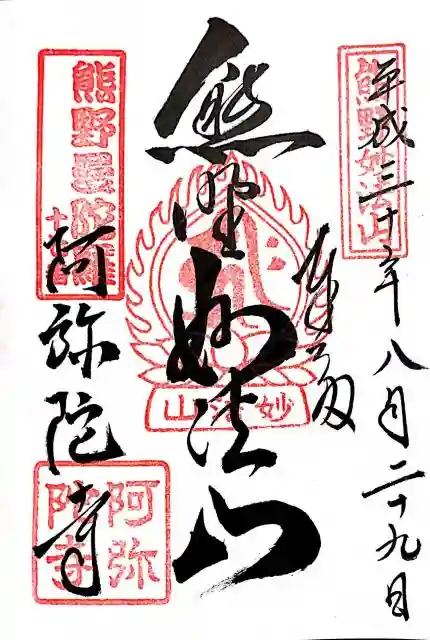 平成三十年八月二十九日
熊野妙法山
奉拝
熊野妙法山
妙法山
阿弥陀寺
熊野曼陀羅
十
阿弥陀寺